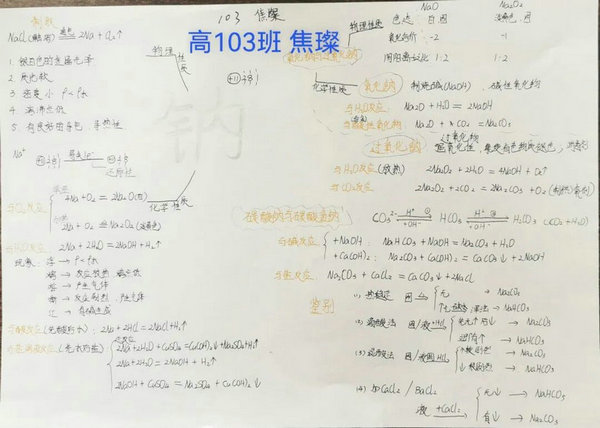 103 焦璨
高103班 焦璨
制取
NaCl(熔融) 通电 2Na + Cl₂↑
物理性质
1. 银白色的金属光泽
2. 质地软
3. 密度小
4. 熔沸点低
5. 有良好的导电、导热性
钠
Na⁺
还原性
化学性质
与O₂反应
4Na + O₂ = 2Na₂O
2Na + O₂ = Na₂O₂(淡黄色)
与H₂O反应: 2Na + 2H₂O = 2NaOH + H₂↑
现象: 浮 →
熔 → 反应放热 熔点低
游 → 产生气体
响 → 反应剧烈, 产生气体
红 → 有碱生成
与酸反应(先酸后水): 2Na + 2HCl = 2NaCl + H₂↑
与盐溶液反应(先水后盐)
2Na + 2H₂O + CuSO₄ = Cu(OH)₂↓ + Na₂SO₄ + H₂↑
2Na + 2H₂O = 2NaOH + H₂↑
2NaOH + CuSO₄ = Na₂SO₄ + Cu(OH)₂↓
NaO Na₂O₂
物理性质 色态 白 固 淡黄色 固
氧元素价 -2 -1
阴阳离子比 1:2 1:2
氧化钠与过氧化钠
化学性质
氧化钠 制烧碱(NaOH), 碱性氧化物
与H₂O反应 Na₂O + H₂O = 2NaOH
与酸性氧化物 Na₂O + CO₂ = Na₂CO₃
过氧化钠 过氧化物
强氧化性, 使有色物质褪色,
与H₂O反应(放热) 2Na₂O₂ + 2H₂O = 4NaOH + O₂↑
与CO₂反应 2Na₂O₂ + 2CO₂ = 2Na₂CO₃ + O₂
碳酸钠与碳酸氢钠 CO₃²⁻ H⁺ +OH⁻ HCO₃⁻ H⁺ +OH⁻ H₂CO₃ (CO₂ + H₂O)
与碱反应
+NaOH: NaHCO₃ + NaOH = Na₂CO₃ + H₂O
+Ca(OH)₂: Na₂CO₃ + Ca(OH)₂ = CaCO₃↓ + 2NaOH
与盐反应: Na₂CO₃ + CaCl₂ = CaCO₃↓ + 2NaCl
鉴别
(1) 热稳定 固 无 → Na₂CO₃
→ NaHCO₃
(2) 加酸法 固/液 +HCl → Na₂CO₃
→ NaHCO₃
(3) 固/液 → Na₂CO₃
→ NaHCO₃
(4) 加CaCl₂ / BaCl₂
液 +CaCl₂ 无↓ → NaHCO₃
有↓ → Na₂CO₃